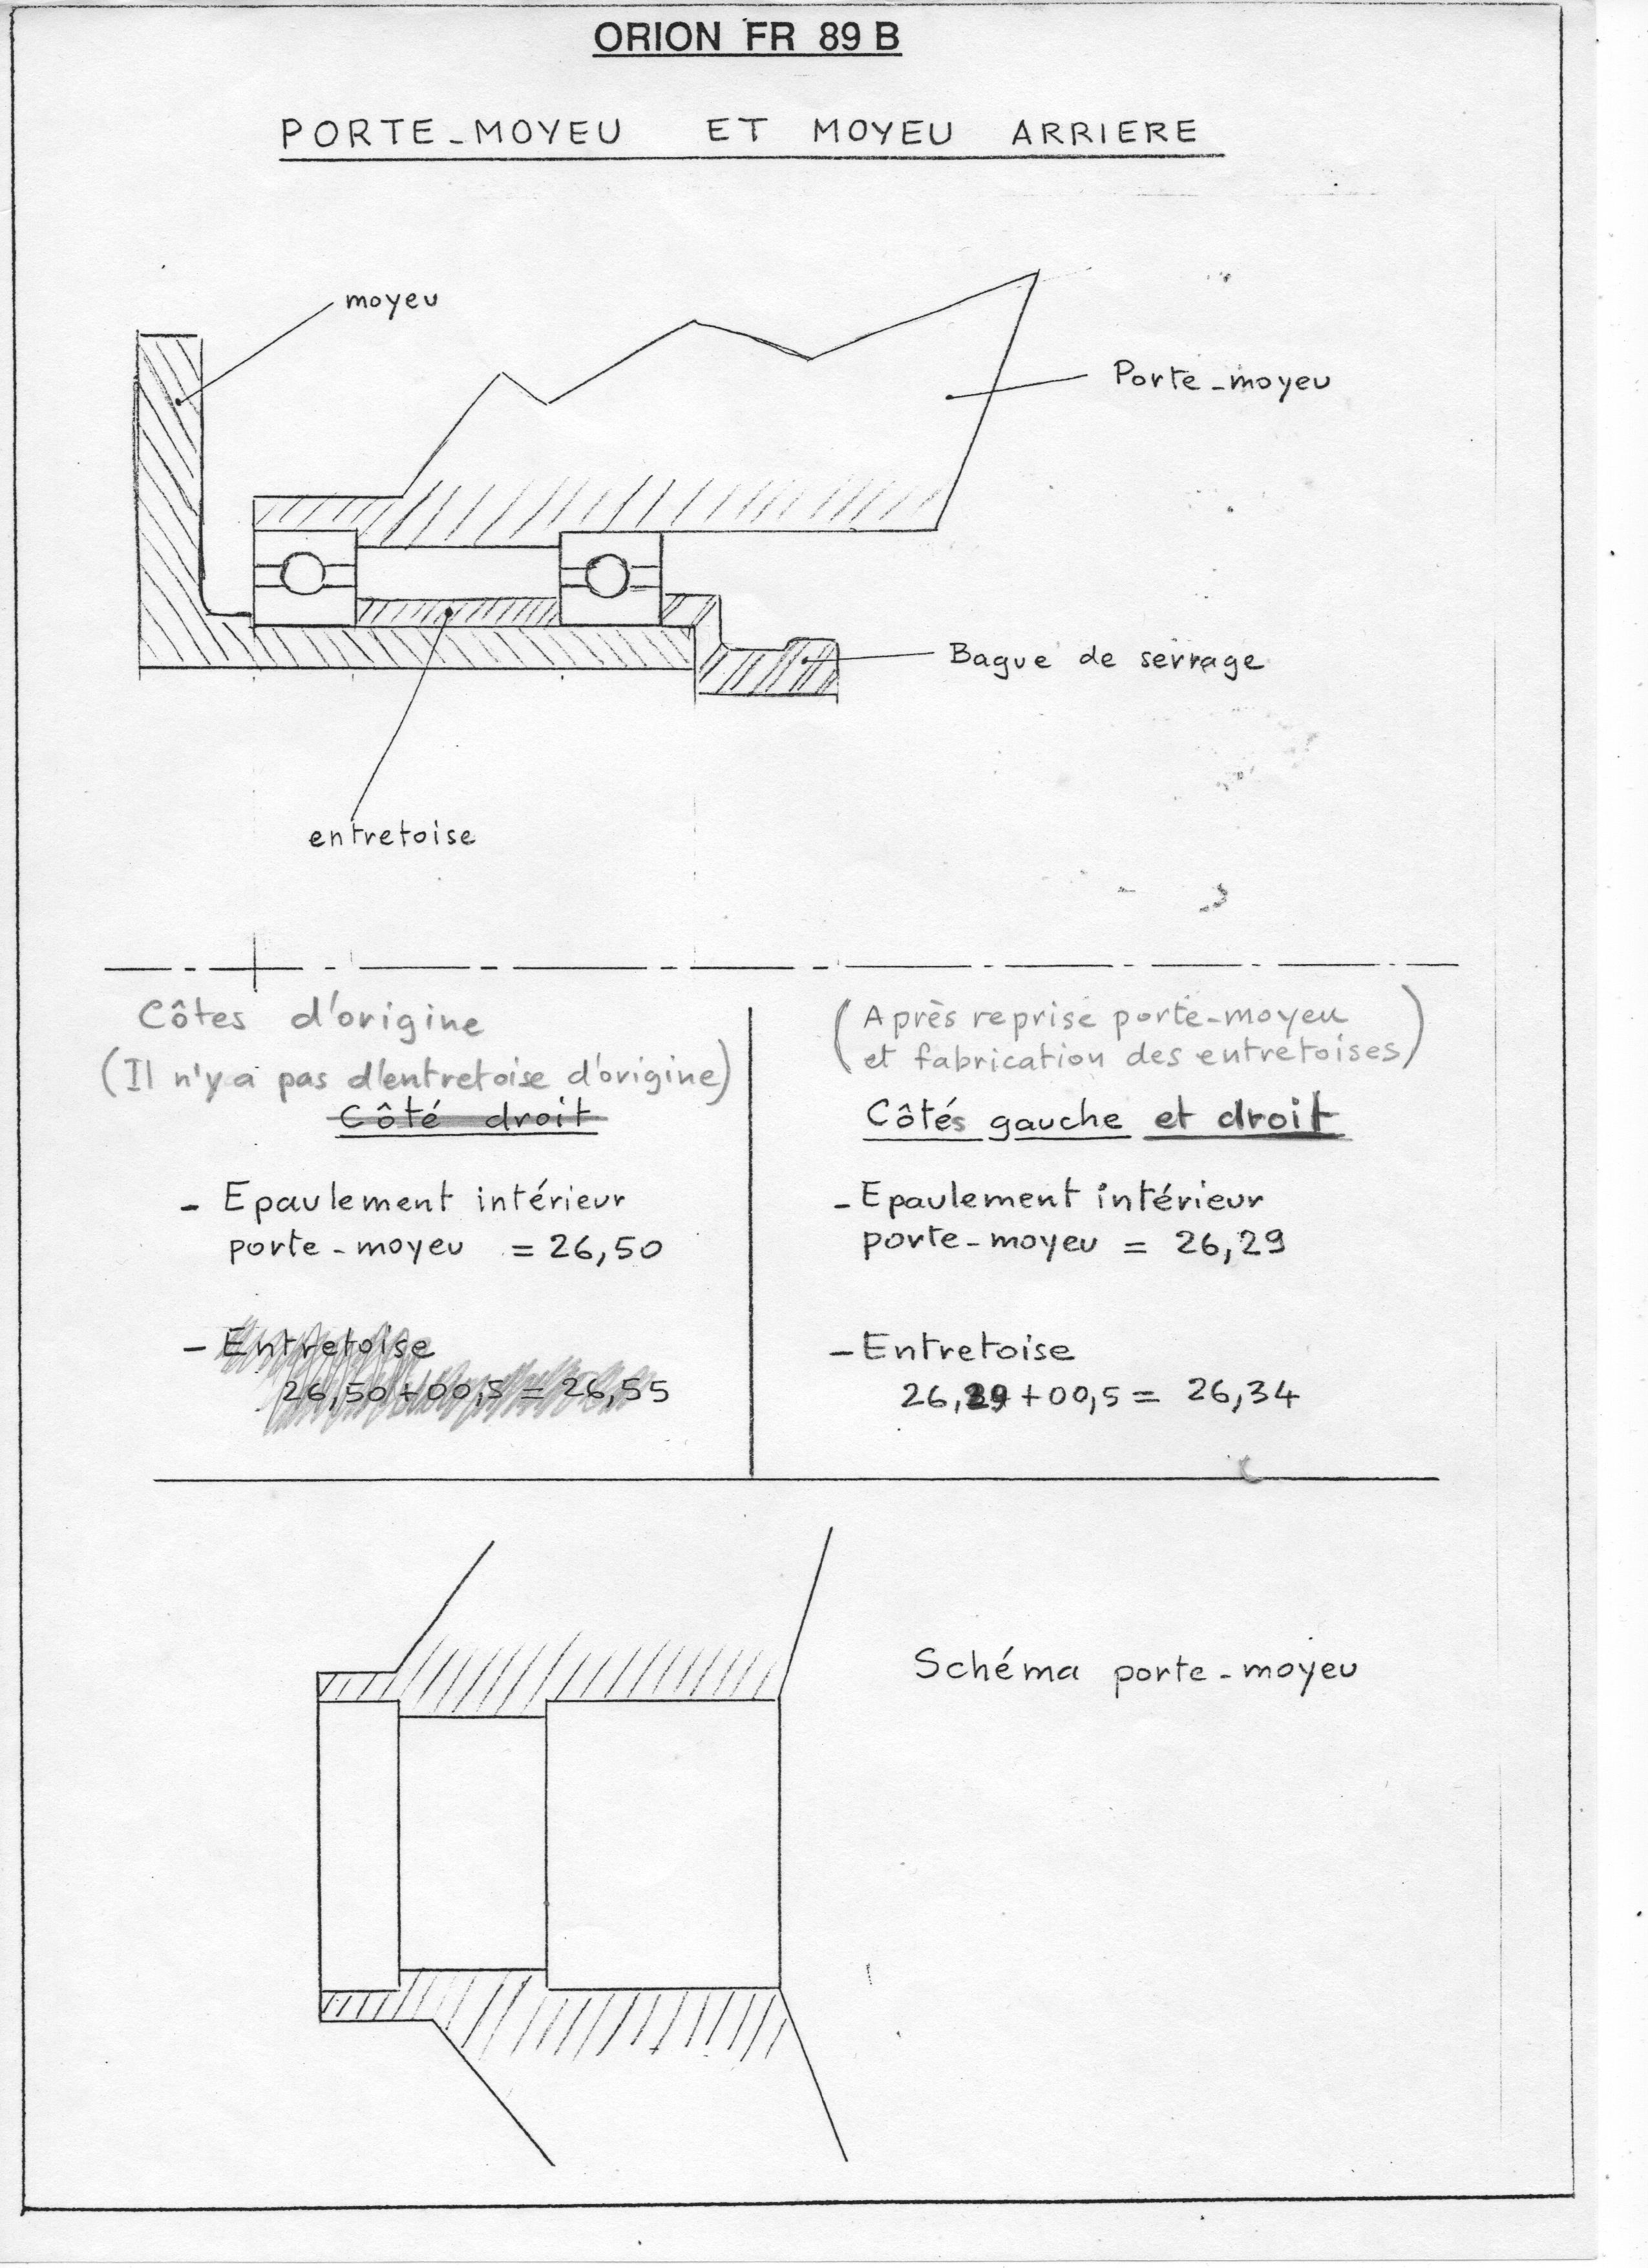 ORION FR 89 B
PORTE-MOYEU ET MOYEU ARRIERE
moyeu
Porte-moyeu
Bague de serrage
entretoise
Côtes d'origine
(Il n'y a pas d'entretoise d'origine)
Côté droit
- Epaulement intérieur
porte-moyeu = 26,50
- Entretoise
26,50+00,5 = 26,55
(Après reprise porte-moyeu
et fabrication des entretoises)
Côtés gauche et droit
- Epaulement intérieur
porte-moyeu = 26,29
- Entretoise
26,29 +00,5 = 26,34
Schéma porte-moyeu